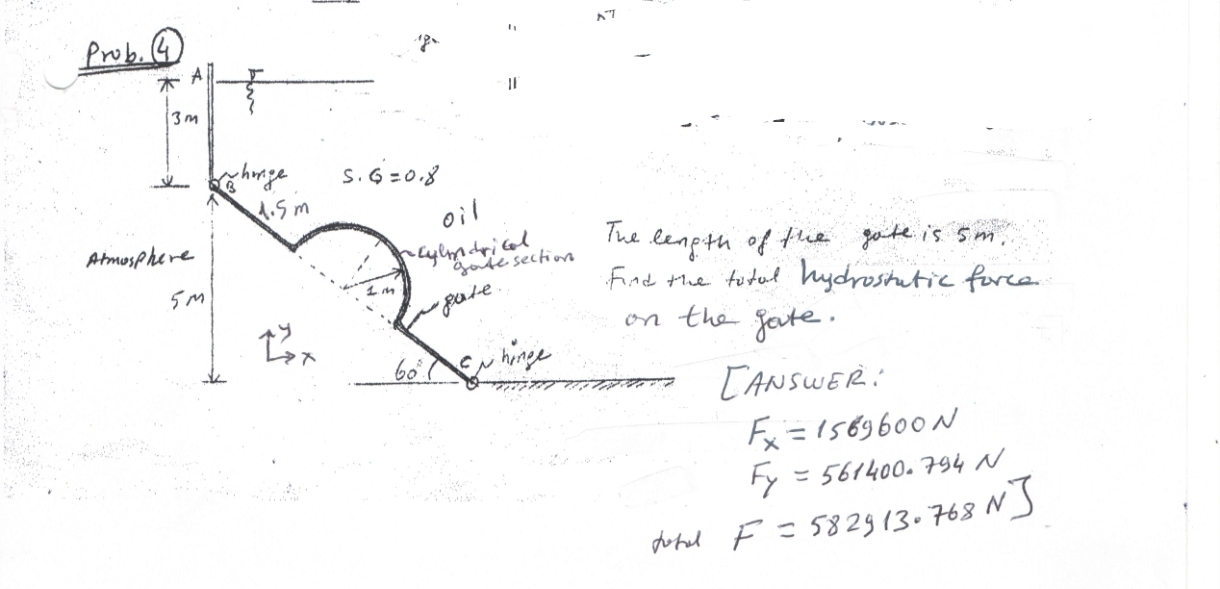 Prob. 4
A
3m
B
hinge
S.G=0.8
1.5 m
oil
cylindrical
gate section
Atmosphere
1m
gate
5M
y
x
60°
C
hinge
The length of the gate is 5m.
Find the total hydrostatic force
on the gate.
[ANSWER:
Fx = 1569600 N
Fy = 561400.794 N
total F = 582913.768 N]